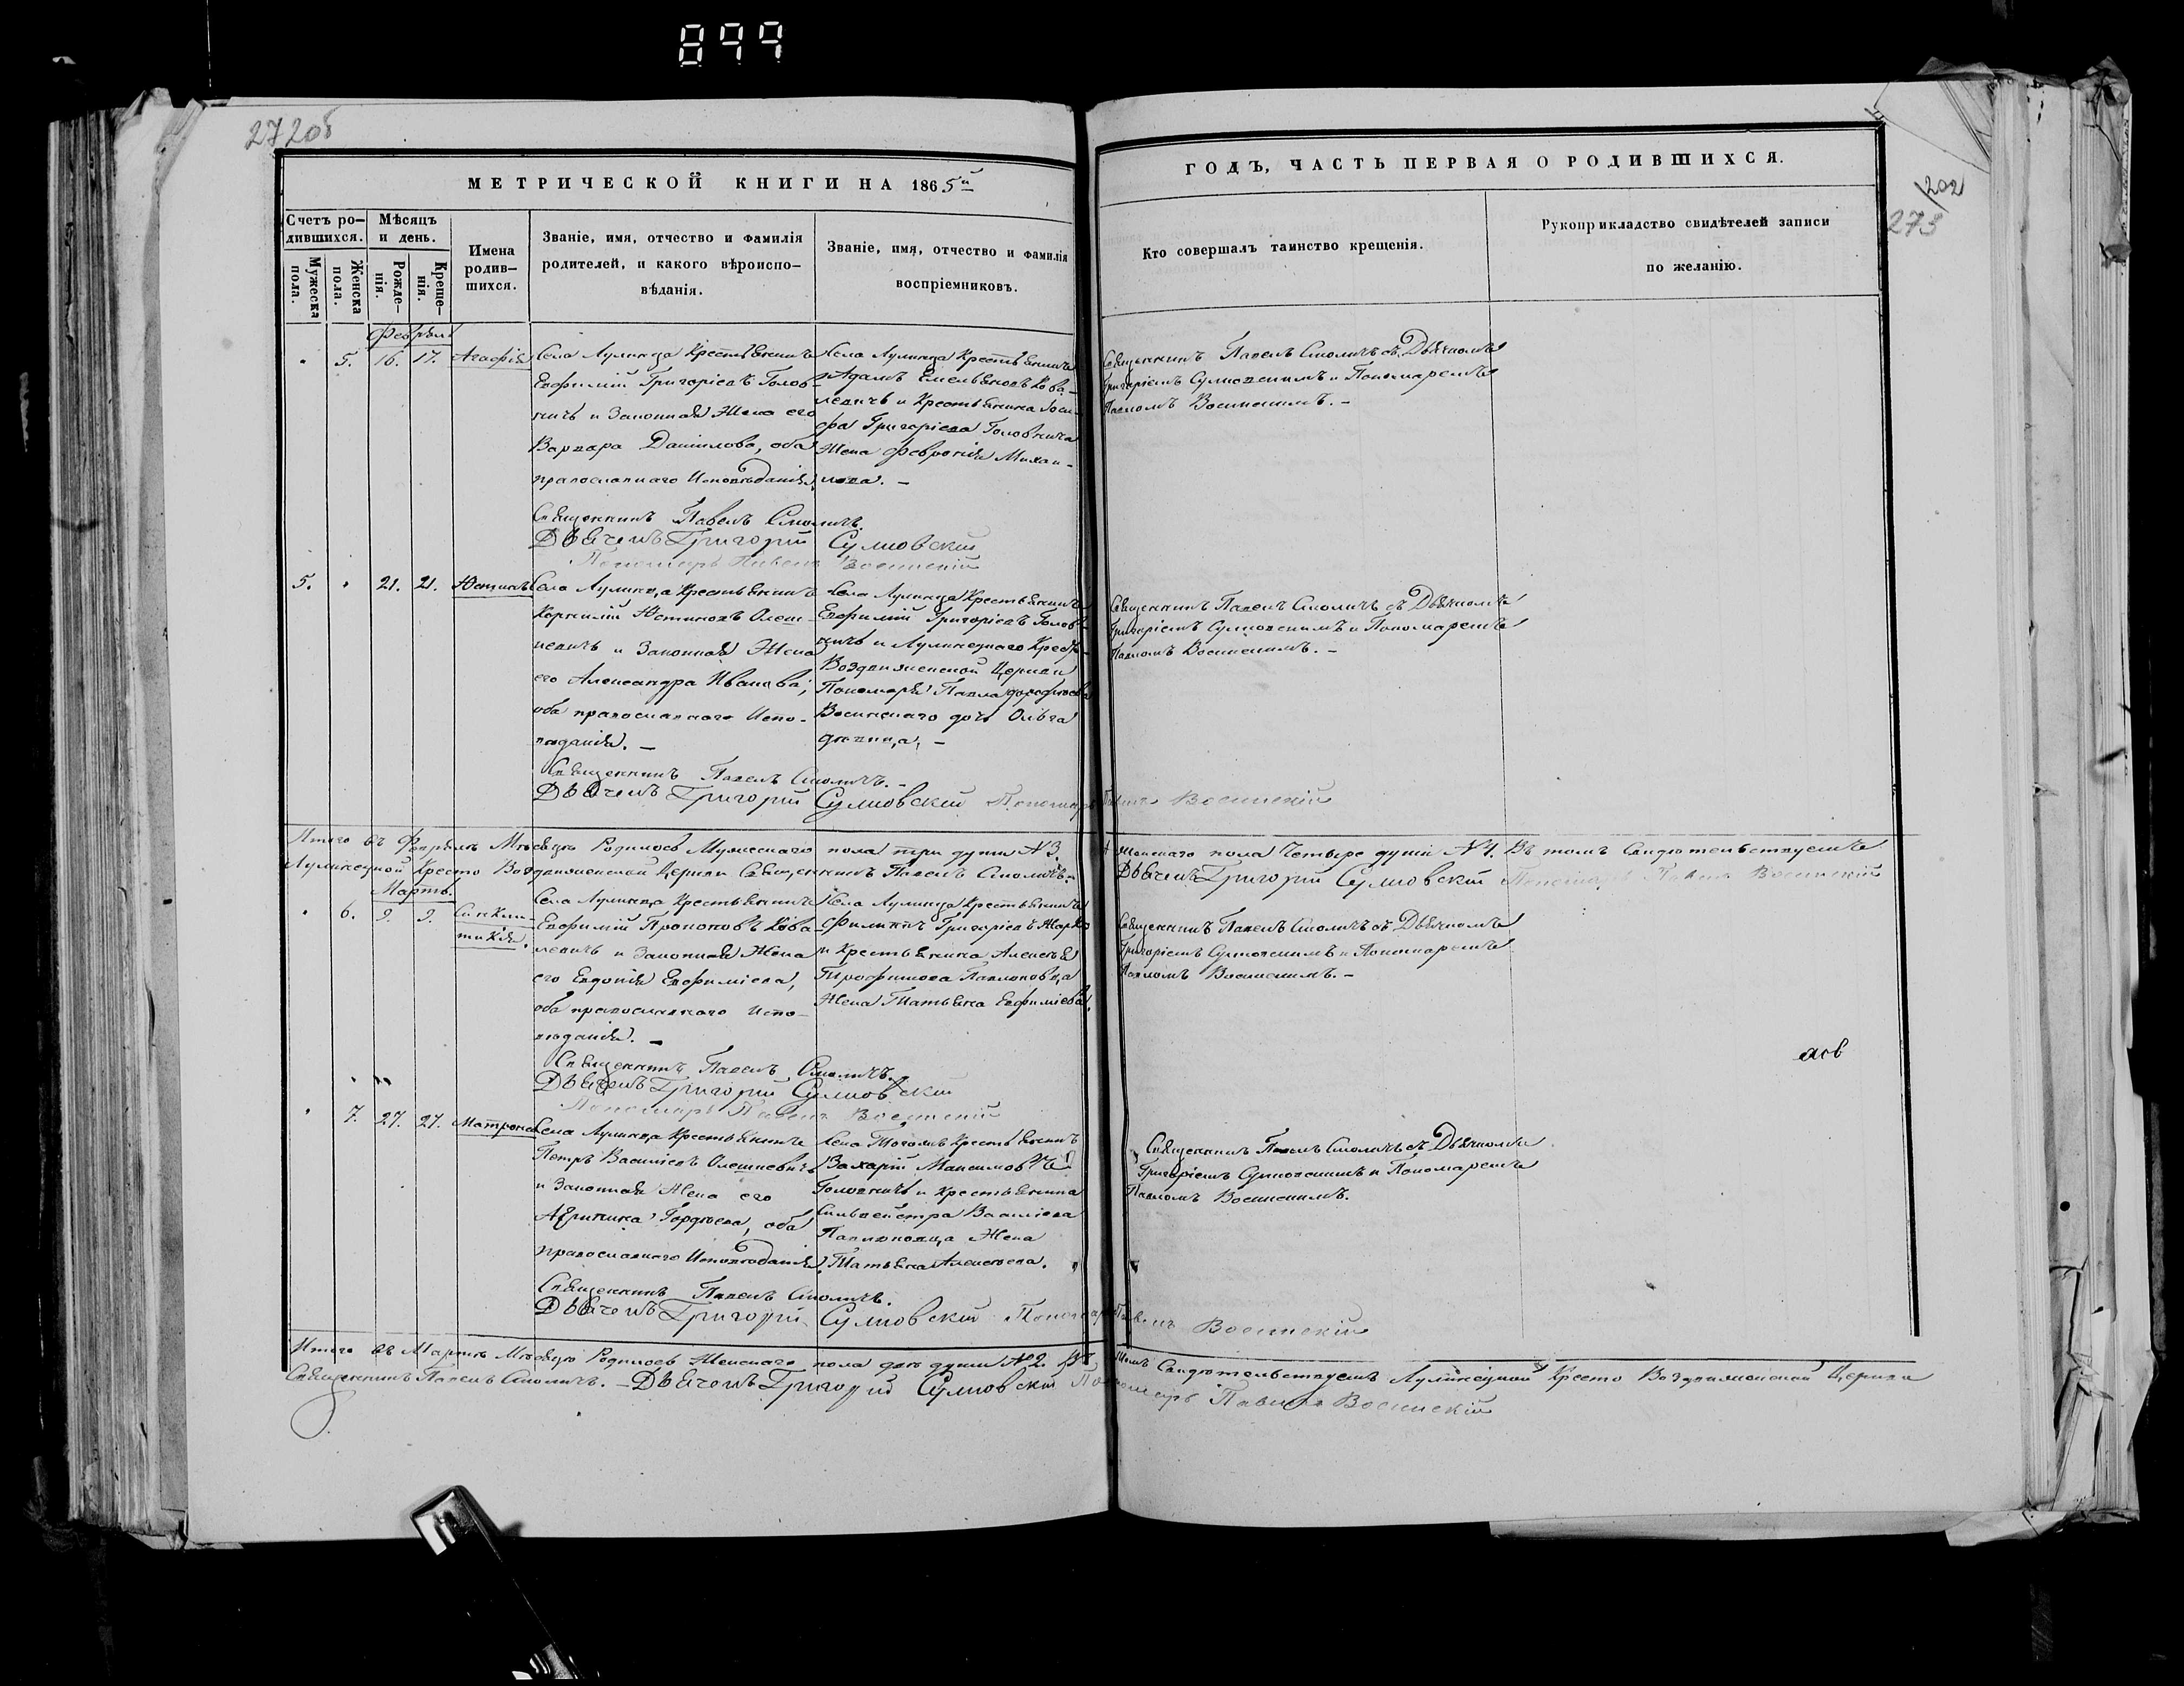 899
272 об
МЕТРИЧЕСКОЙ КНИГИ НА 1865й
Счетъ ро-
дившихся.
Мѣсяцъ
и день.
Мужеска
пола.
Женска
пола.
Рожде-
нія.
Креще-
нія.
Имена
родив-
шихся.
Званіе, имя, отчество и фамилія
родителей, и какого вѣроиспо-
вѣданія.
Званіе, имя, отчество и фамилія
воспріемниковъ.
ГОДЪ, ЧАСТЬ ПЕРВАЯ О РОДИВШИХСЯ.
Кто совершалъ таинство крещенія.
Рукоприкладство свидѣтелей записи
по желанію.
202
273
Февраль
5. 16. 17. Агафія
Села Лулинца Крестьянинъ
Евфимій Григоріевъ Голов-
ничъ и Законная Жена его
Варвара Даниилова, оба
православнаго Исповѣданія.
Села Лулинца Крестьянинъ
Адамъ Емельяновъ Кова-
левичъ и Крестьянина Іоси-
фа Григоріева Головнича
Жена Февронія Михаи-
лова. —
Священникъ Павелъ Смоличъ съ Дьячкомъ
Григоріемъ Сулковскимъ и Пономаремъ
Павломъ Восинскимъ. —
Священникъ Павелъ Смоличъ.
Дьячекъ Григорій Сулковскій
Пономарь Павелъ Восинскій
5. 21. 21. Юстинъ
Села Лулинца Крестьянинъ
Корнилій Юстиновъ Олеш-
кевичъ и Законная Жена
его Александра Иванова,
оба православнаго Испо-
вѣданія. —
Села Лулинца Крестьянинъ
Евфимій Григоріевъ Голов-
ничъ и Лулинецкаго Кресто-
Воздвиженской Церкви
Пономаря Павла
Восинскаго дочь Ольга
дѣвица. —
Священникъ Павелъ Смоличъ съ Дьячкомъ
Григоріемъ Сулковскимъ и Пономаремъ
Павломъ Восинскимъ. —
Священникъ Павелъ Смоличъ. —
Дьячекъ Григорій Сулковскій Пономарь Павелъ Восинскій
Итого въ Февралѣ Мѣсяцѣ Родилось Мужескаго пола три души № 3. А женскаго пола Четыре души № 4. Въ томъ Свидѣтельствуемъ
Лулинецкой Кресто Воздвиженской Церкви Священникъ Павелъ Смоличъ. — Дьячекъ Григорій Сулковскій Пономарь Павелъ Восинскій
Мартъ.
6. 9. 9. Синкли-
тикія.
Села Лулинца Крестьянинъ
Евфимій Прокоповъ Кова-
левичъ и Законная Жена
его Евдокія Евфиміева,
оба православнаго Испо-
вѣданія. —
Села Лулинца Крестьянинъ
Филиппъ Григоріевъ Жарко
и Крестьянина Алексѣя
Трофимова Павлюковца
Жена Татьяна Евфиміева.
Священникъ Павелъ Смоличъ съ Дьячкомъ
Григоріемъ Сулковскимъ и Пономаремъ
Павломъ Восинскимъ. —
Священникъ Павелъ Смоличъ.
Дьячекъ Григорій Сулковскій
Пономарь Павелъ Восинскій
7. 27. 27. Матрона
Села Лулинца Крестьянинъ
Петръ Василіевъ Олешкевичъ
и Законная Жена его
Агрипина Гордѣева, оба
православнаго Исповѣданія.
Крестьянинъ
Захарій Максимовъ
Головничъ и Крестьянина
Сильвестра Василіева
Павлюковца Жена
Татьяна Алексѣева.
Священникъ Павелъ Смоличъ съ Дьячкомъ
Григоріемъ Сулковскимъ и Пономаремъ
Павломъ Восинскимъ.
Священникъ Павелъ Смоличъ.
Дьячекъ Григорій Сулковскій Пономарь Павелъ Восинскій
Итого въ Мартѣ Мѣсяцѣ Родилось Женскаго пола двѣ души № 2. Въ томъ Свидѣтельствуемъ Лулинецкой Кресто Воздвиженской Церкви
Священникъ Павелъ Смоличъ. — Дьячекъ Григорій Сулковскій Пономарь Павелъ Восинскій